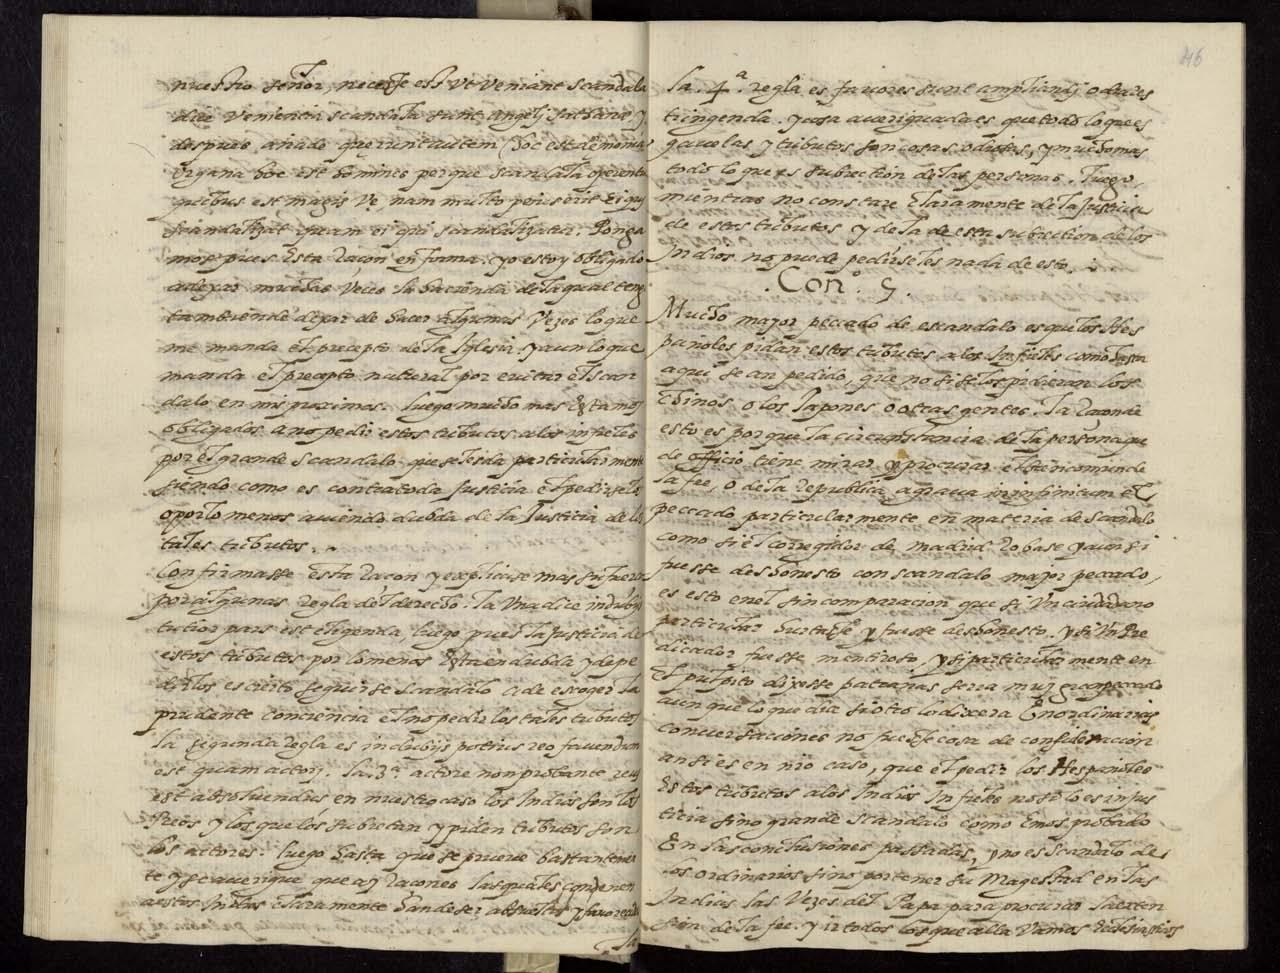 nuestro señor, necesse est ut veniant scandala
ideo venientia scandala sunt angelj sathane y
despues añade querunt autem hoc est demonia
organa hoc est homines per que scandala operentur
quibus est magis ve nam multo peius erit ei qui
scandalizat quam ei qui scandalizatur. Ponga
mos pues esta raçon en forma: yo estoy obligado
a dexar muchas veces la hacienda de la qual teng
tambien de dexar de hacer algunas vezes lo que
me manda el precepto de la Iglesia. y aun lo que
manda el precepto natural por euitar el scan
dalo en mis proximos. luego mucho mas estamos
obligados a no pedir estos tributos a los infieles
por el grande scandalo que se les da particularmente
siendo como es contra toda justicia el pedirselos
o por lo menos auiendo dubda de la Justicia de los
tales tributos.
Confirmasse esta raçon y explicase mas su fuerza
por algunas regla del derecho. la vna dice in dubijs
tutior pars est eligenda, luego pues la justicia de
estos tributos por lo menos esta en dubda y de pe
dirlos es cierto seguirse scandalo a de escoger la
prudente conciencia el no pedir los tales tributos
la segunda regla es in dubijs potius reo fauendum
est quam actorj. la 3ª actore non probante reus
est absoluendus en nuestro caso los Indios son los
freos y los que los subietan y piden tributos son
los actores. luego hasta que se prueue bastantemen
te y se auerigue que ay raçones las quales condenen
a estos Indios claramente han de ser absueltos y fauorecidos
la
46
la. 4ª. regla es fauores sunt ampliandj odia res
tringenda. y cosa aueriguada es que todo lo que es
gauelas y tributos son cosas odiosas, y mucho mas
todo lo que es subiection de las personas. luego
mientras no constare claramente de la justicia
de estos tributos y de la de esta subiection de los
Indios no puede pedirseles nada de esto.
. Con. 5 .
Mucho mayor peccado de escandalo es que los Hes
pañoles pidan estos tributos a los Infieles como hasta
aqui se an pedido, que no si se los pidieran los
Chinos o los Iapones o otras gentes. la raçon de
esto es porque la circunstancia de la persona que
de officio tiene mirar y procurar el bien comun de
la fee, o de la republica agraua in infinitum el
peccado particularmente en materia de scandalo
como si el corregidor de madrid robase y aun si
fuesse deshonesto con scandalo mayor peccado,
es esto en el sin comparacion que si vn ciudadano
particular hurtasse y fuesse deshonesto. y si vn Pre
dicador fuesse mentiroso, y si particularmente en
el pulpito dixesse patrañas seria muy gran peccado
aunque lo que dia si otro lo dixera en ordinarias
conuersaciones no fuesse cosa de consideracion
ansi es en nro caso, que el pedir los Hespañoles
estos tributos a los Indios Infieles no solo es injus
ticia sino grande scandalo como emos probado
En las conclusiones passadas, y no es scandalo de
los ordinarios sino por tener su Magestad en las
Indias las vezes del Papa para procurar la exten
sion de la fee. y ir todos los que alla vamos ecclesiasticos